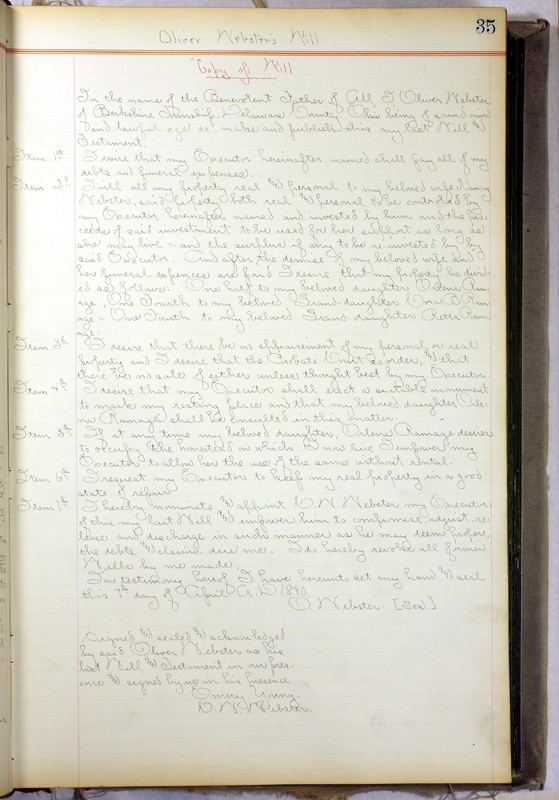 35
Oliver Webster's Will
Copy of Will
In the name of the Benevolent Father of All, I Oliver Webster
of Berkshire Township, Delaware County Ohio being of sound mind
and lawful age do make and publish this my last Will &
Testament.
Item 1st I desire that my Executor hereinafter named shall pay all of my
debts and funeral expenses.
Item 2d I will all my property real & personal to my beloved wife Nancy
Webster, said property both real & personal to be controlled by
my Executor hereinafter named and invested by him and the pro-
ceeds of said investment to be used for her support as long as
she may live and the surplus if any to be re-invested by my
said Executor. And after the demise of my beloved wife and
her funeral expences are paid I desire that my property be divid-
ed as follows: One half to my beloved daughter Orlena Ram-
age, One Fourth to my beloved Grand-daughter Cora B Ram-
age - One Fourth to my beloved Grand daughter Retta Ram
age.
Item 3d I desire that there be no appraisement of my personal or real
property and I desire that the Probate Court so order, & that
there be no sale of either unless thought best by my Executor.
Item 4th I desire that my Executor shall erect a suitable monument
to mark my resting place and that my beloved daughter Orle-
na Ramage shall be consulted in this matter.
Item 5th If at any time my beloved daughter, Orlena Ramage desires
to occupy the homestead on which I now live I empower my
Executor to allow her the use of the same without rental.
Item 6th I request my Executor to keep my real property in a good
state of repair
Item 7th I hereby nominate & appoint D. N. Webster my Executor
of this my last Will & empower him to compromise, adjust, re-
lease and discharge in such manner as he may deem proper,
the debts & claims due me. I do hereby revoke all former
Wills by me made.
In testimony hereof I have hereunto set my hand & seal
this 7th day of April A. D 1890.
O. Webster. [Seal]
Signed & sealed & acknowledged
by said Oliver Webster as his
last Will & Testament in our pres-
ence & signed by us in his presence
Emery Young.
D. N. Webster.